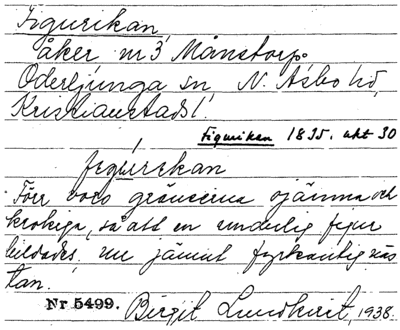 Figurikan
åker nr 3 Månstorp.
Oderljunga sn, N. Åsbo hd,
Kristianstads l.
Figurikan 1835. akt 30
figurekan
Förr voro gränserna ojämna och
krokiga, så att en underlig figur
bildades, nu jämnt fyrkantig näs
tan.
Nr 5499. Birgit Lundkvist, 1938.